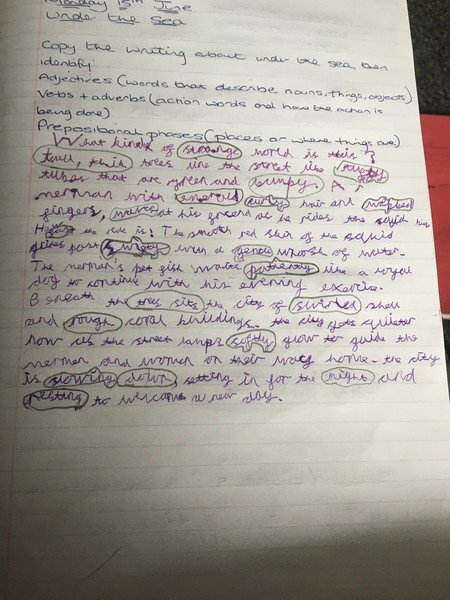 Monday 15th June
Under the Sea
Copy the writing about under the sea, then
identify:
Adjectives (words that describe nouns, things, objects)
Verbs + adverbs (action words and how the action is
being done)
Prepositional phases (places or where things are)
What kinds of strange world is this?
tall, thin trees line the street like
tubes that are green and bumpy. A
merman with emerald curly hair and webbed
fingers, waves at his friend as he rides the squid
How the ride is! The smooth red skin of the squid
glides past with a gentle whoosh of water.
The merman's pet fish waits patiently like a loyal
dog to continue with his evening exercise.
Beneath the trees sits the city of swirled shell
and rough coral buildings. the city gets quieter
now as the street lamps softly glow to guide the
mermen and women on their way home. the city
is slowing down, setting in for the night and
resting to welcome a new day.